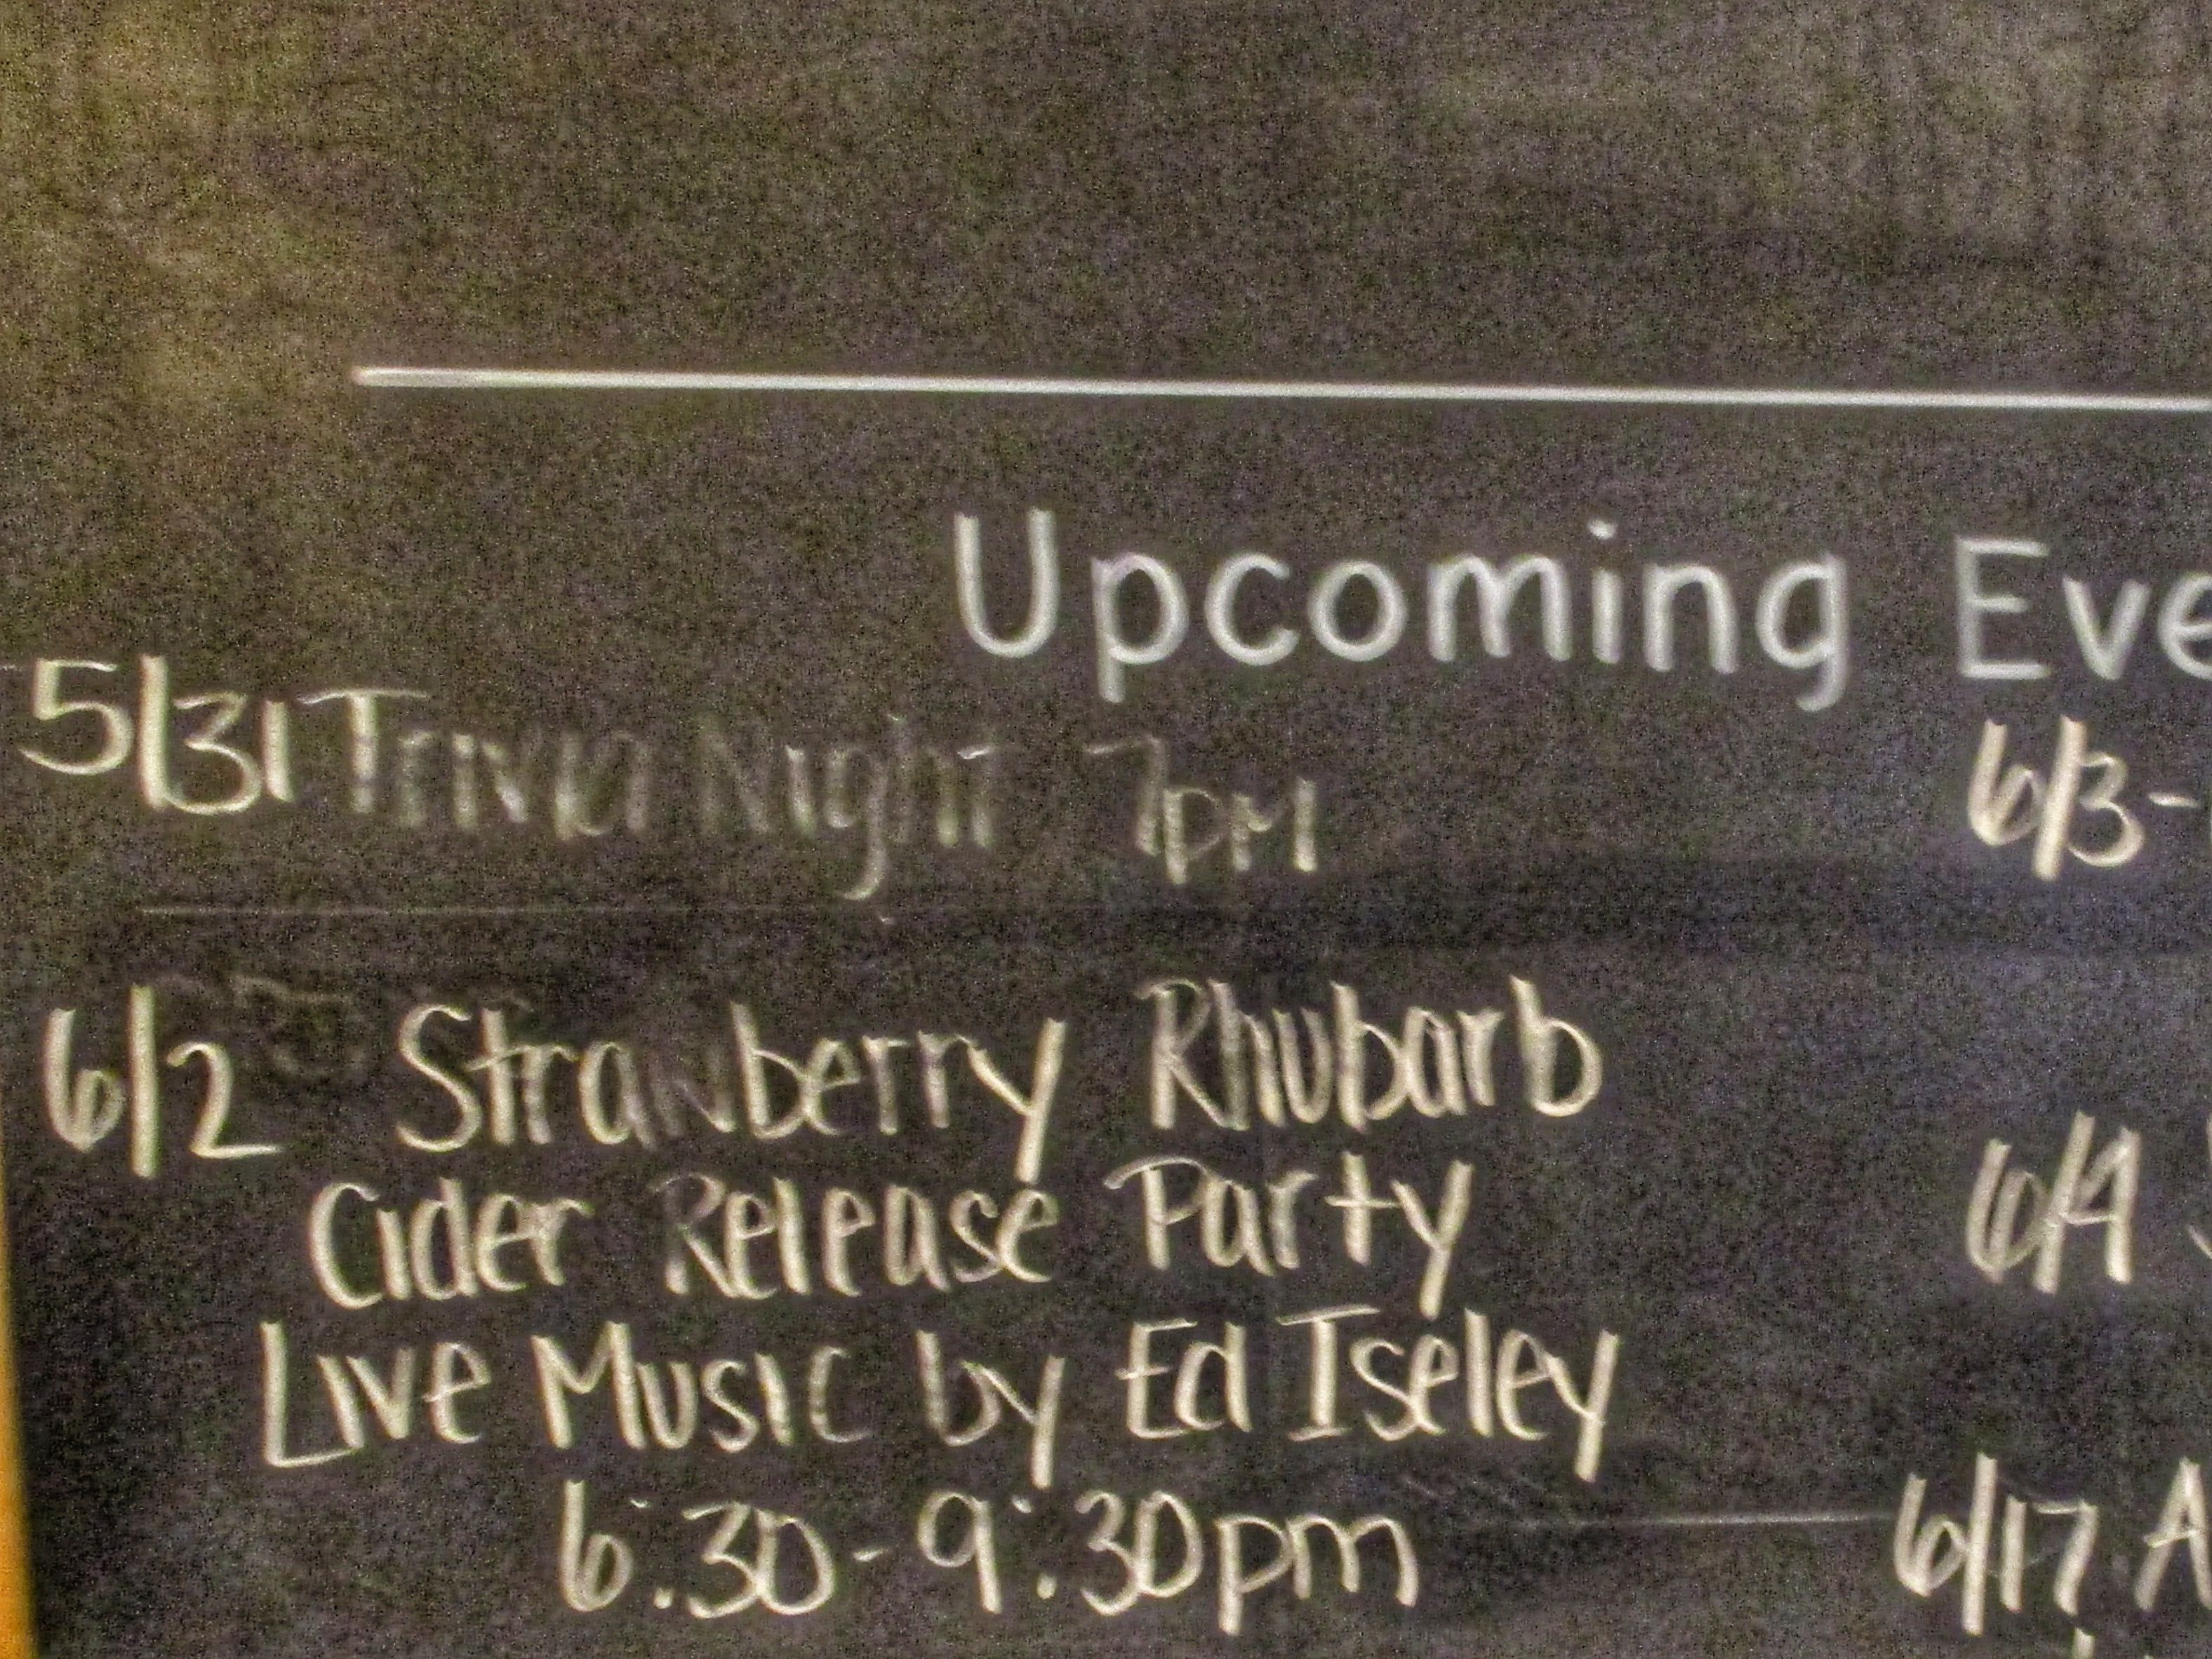 Upcoming Eve
5/31 Trivia Night 7pm
6/2 Strawberry Rhubarb
Cider Release Party
Live Music by Ed Iseley
6:30-9:30pm
6/3-
6/4
6/17 A